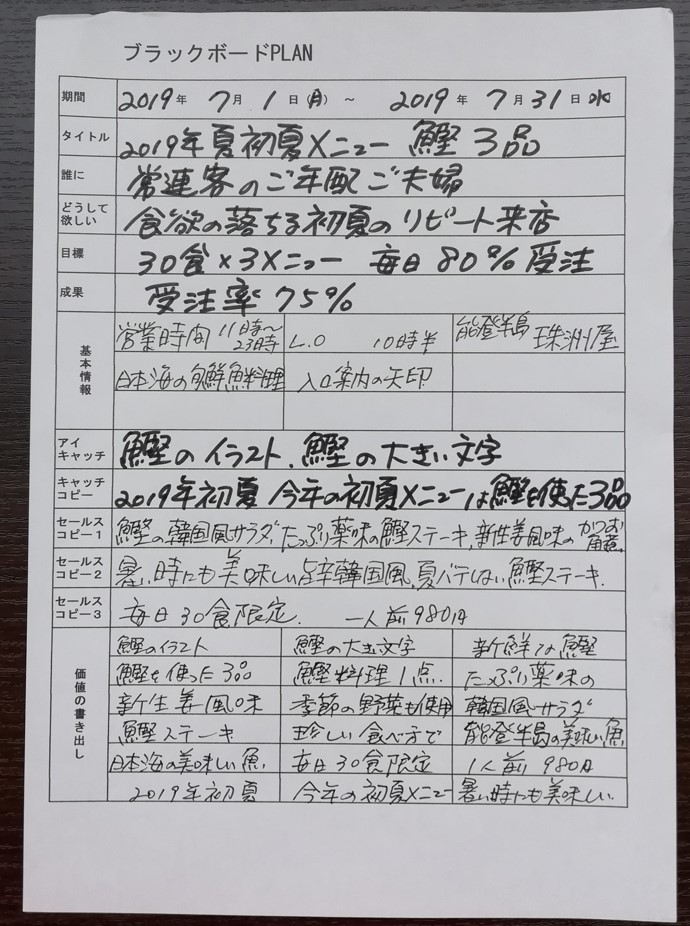 ブラックボードPLAN
期間 2019年 7月 1日(月) ～ 2019年 7月31日 水
タイトル 2019年夏初夏メニュー 鰹 3品
誰に 常連客のご年配ご夫婦
どうして欲しい 食欲の落ちる初夏のリピート来店
目標 30食×3メニュー 毎日80%受注
成果 受注率75%
基本情報
営業時間 11時～23時 L.O 10時半 能登半島 珠洲屋
日本海の旬鮮魚料理 入口案内の矢印
アイキャッチ 鰹のイラスト、鰹の大きい文字
キャッチコピー 2019年初夏 今年の初夏メニューは鰹を使った3品
セールスコピー1 鰹の韓国風サラダ、たっぷり薬味の鰹ステーキ、新生姜風味のかつお角煮
セールスコピー2 暑い時にも美味しい旨辛韓国風、夏バテしない鰹ステーキ.
セールスコピー3 毎日30食限定. 一人前980円
価値の書き出し
鰹のイラスト 鰹の大きな文字 新鮮な鰹
鰹を使った3品 鰹料理1点. たっぷり薬味の
新生姜風味 季節の野菜も使用 韓国風サラダ
鰹ステーキ 珍しい食べ方で 能登半島の美味しい魚
日本海の美味しい魚. 毎日30食限定 1人前 980円
2019年初夏 今年の初夏メニュー 暑い時にも美味しい.